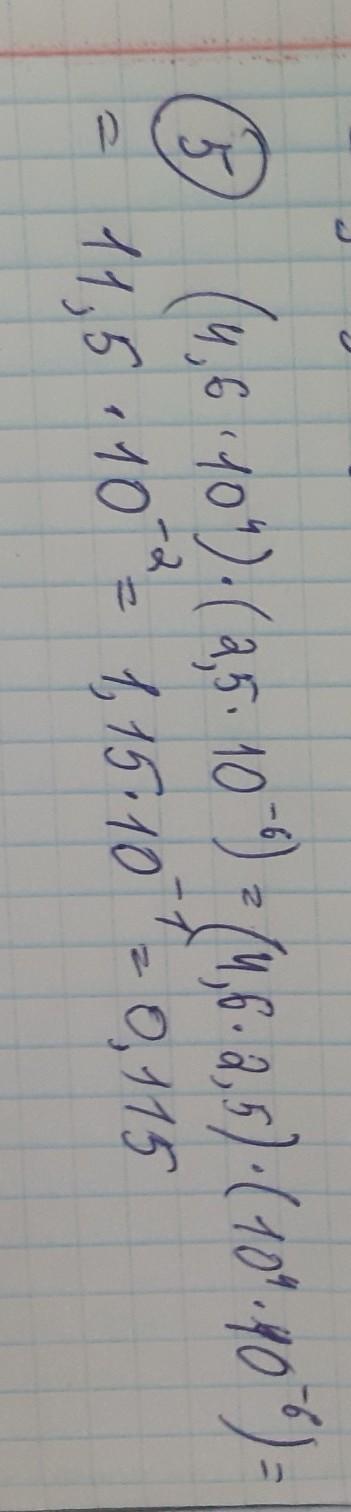 5 (4,6·10⁴)·(2,5·10⁻⁶)=(4,6·2,5)·(10⁴·10⁻⁶)=
= 11,5·10⁻² = 1,15·10⁻¹ = 0,115